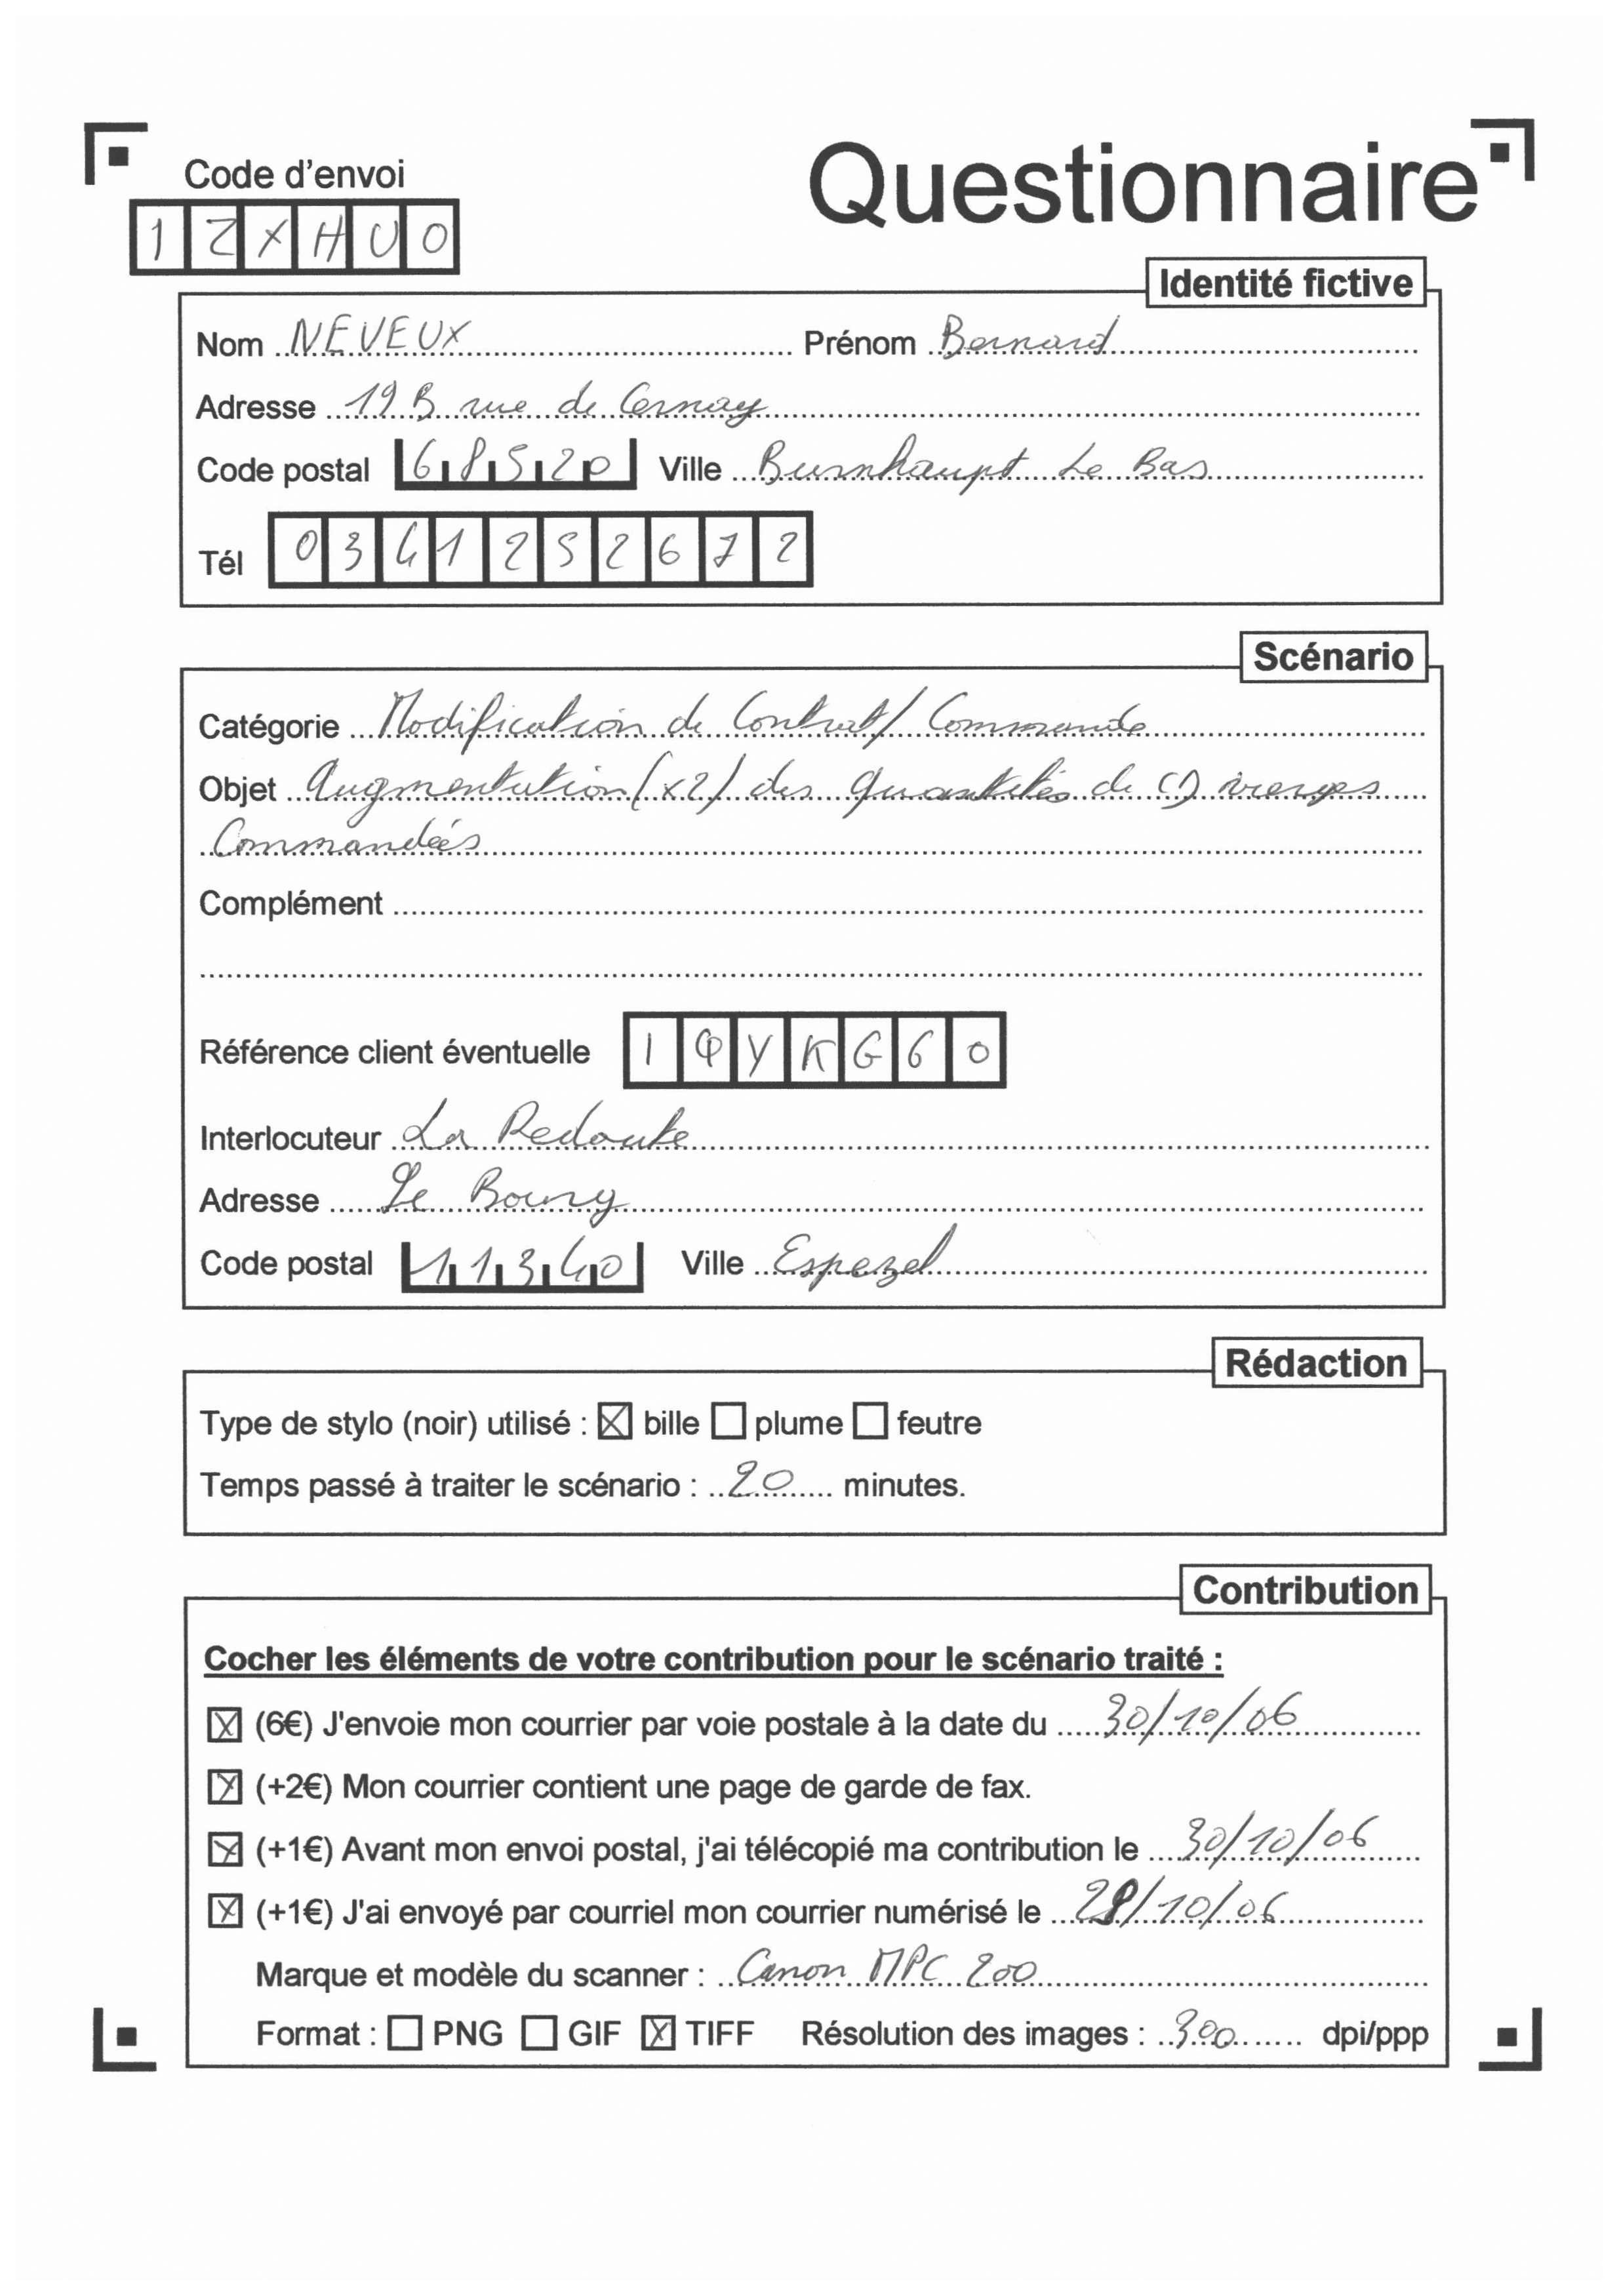 Code d'envoi
Questionnaire
1 Z X H U 0
Identité fictive
Nom NEVEUX Prénom Bernard
Adresse 19 B rue de Cernay
Code postal 68520 Ville Burnhaupt Le Bas
Tél 0341252672
Scénario
Catégorie Modification de Contrat / Commande
Objet Augmentation (x2) des quantités de CD vierges
Commandées
Complément
Référence client éventuelle I Q Y K G 6 0
Interlocuteur La Redoute
Adresse Le Bourg
Code postal 11340 Ville Espezel
Rédaction
Type de stylo (noir) utilisé : ☒ bille ☐ plume ☐ feutre
Temps passé à traiter le scénario : 20 minutes.
Contribution
Cocher les éléments de votre contribution pour le scénario traité :
☒ (6€) J'envoie mon courrier par voie postale à la date du 30/10/06
☒ (+2€) Mon courrier contient une page de garde de fax.
☒ (+1€) Avant mon envoi postal, j'ai télécopié ma contribution le 30/10/06
☒ (+1€) J'ai envoyé par courriel mon courrier numérisé le 28/10/06
Marque et modèle du scanner : Canon MPC 200
Format : ☐ PNG ☐ GIF ☒ TIFF Résolution des images : 300 dpi/ppp